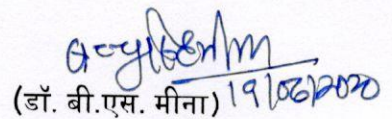 (डॉ. बी.एस. मीना) 19/06/2020